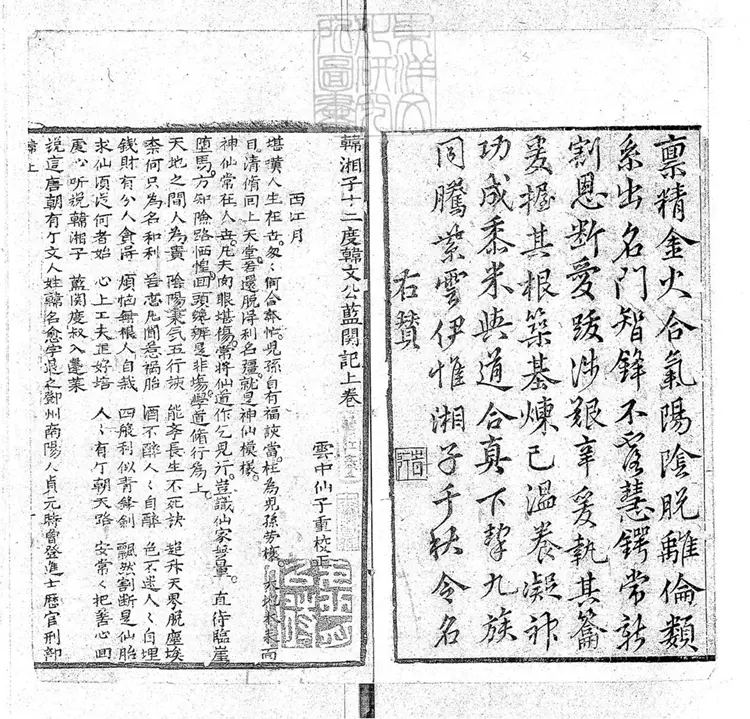 稟精金火合氣陽陰脫離倫類
系出名門智鋒不露慧鍔常新
割恩断愛跋涉艱辛爰執其籥
爰握其根築基煉己温養凝神
功成黍米與道合真下挈九族
同騰紫雲伊惟湘子千秋令名
右贊
韓湘子十二度韓文公藍関記上卷
雲中仙子重校正
西江月
堪嘆人生在世。匆〻何合奔忙。児孫自有福 當。枉為児孫劳攘。天地本來
日清脩同上天堂。若還脱得利名韁就是神仙模樣。
神仙常在人世。凡夫肉眼堪傷。常將仙道作乞見 。豈識仙家 量。直待臨崖
墮馬。方知險路恓惶。回頭纔辨是非場。學道脩行為上。
天地之間人為貴 陰陽稟炁五行 能 長生不死訣 超升天界脱塵埃
柰何只為名和利 苦恋凡間惹禍胎 酒不醉人〻自醉 色不迷人〻自埋
錢財有分人貪得 煩惱無根人自栽 四般利似青鋒劍 飄然割断是仙胎
求仙須從何者始 心上工夫正好培 人〻有亇朝天路 安常〻把善心回
虔心听説韓湘子 藍関度叔入蓬萊
説這唐朝有亇文人姓韓名愈字退之鄭州南陽人貞元時曾登進士歷官刑部
韓上
東洋文化研究所圖書